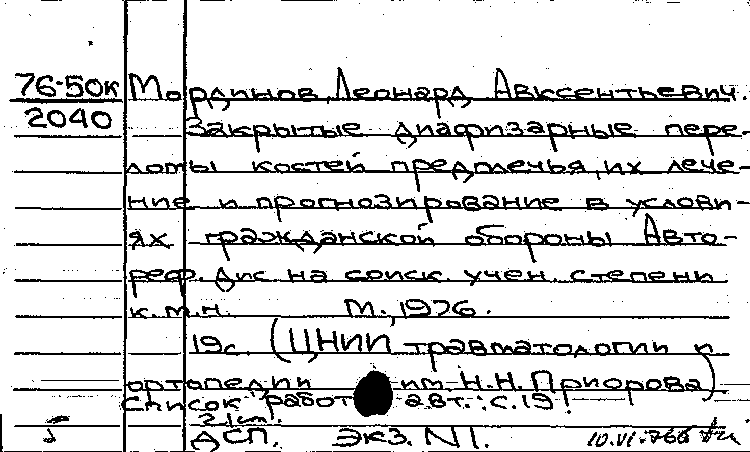 76-50к Мординов, Леонард Авксентьевич.
2040 Закрытые диафизарные пере-
ломы костей предплечья, их лече-
ние и прогнозирование в услови-
ях гражданской обороны Авто-
реф. дис на соиск. учен. степени
к.м.н. М., 1976.
19с. (ЦНИИ травматологии и
ортопедии им. Н.Н. Приорова)
Список работ авт.: с.19.
АСП. Экз. N1. 10.VI.766